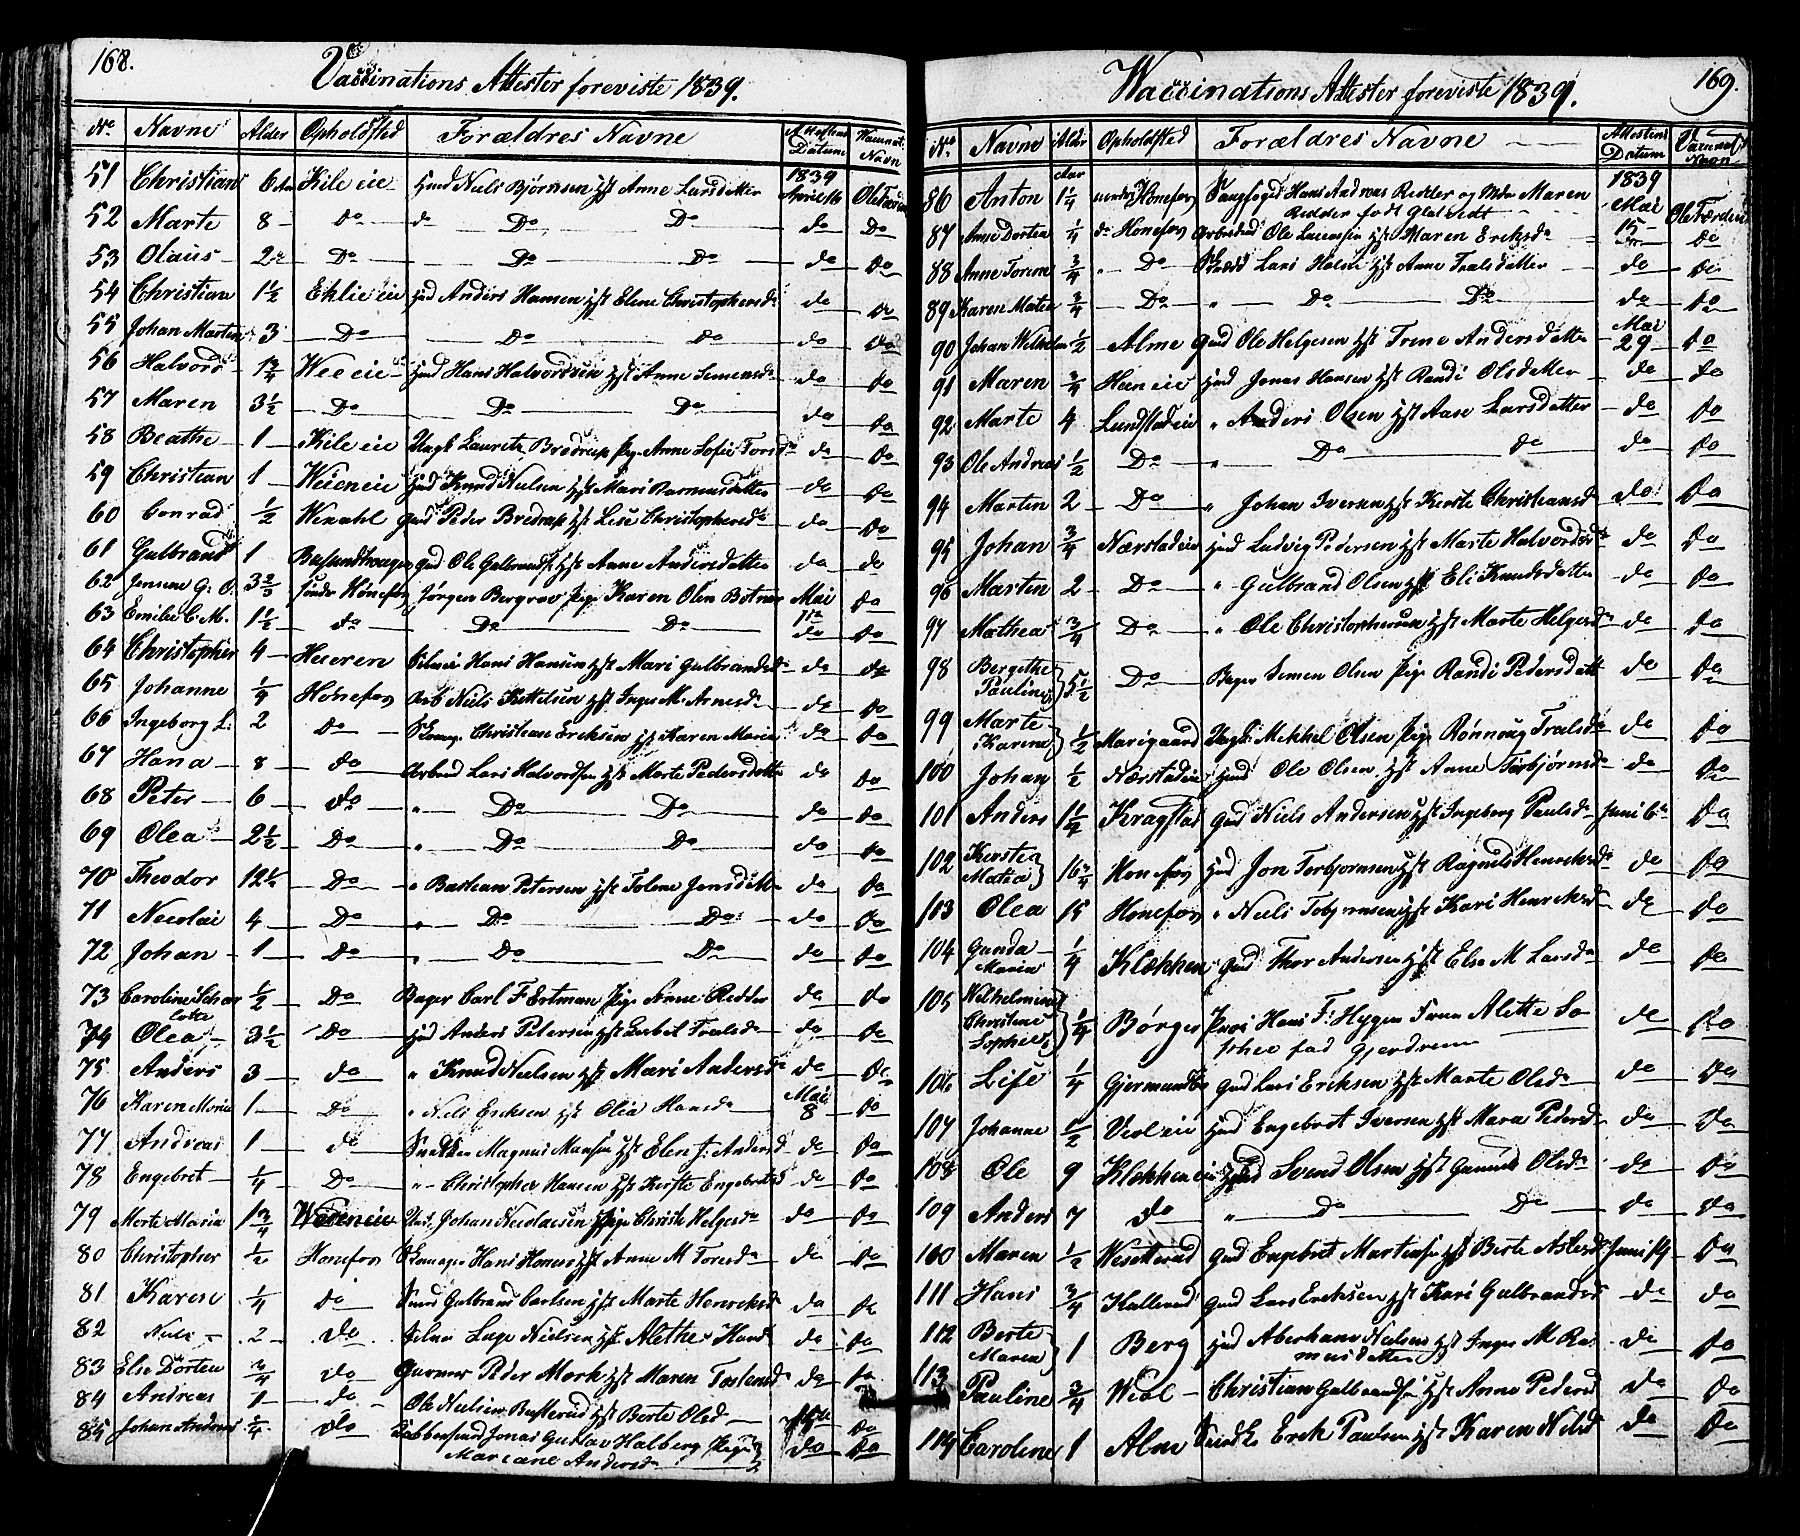 168.
Vaccinations Attester foreviste 1839.
No Navne Alder Opholdsted Forældres Navne Attestens Datum Vaccinat. Navn
51 Christian 6 Aar Kile eie Huusmd Niels Bjørnsen Hst Anne Larsdatter 1839 April 16 Ole Færden
52 Marte 8 do do Do Do do Do
53 Olaus 2 Do Do Do do do
54 Christian 1½ Eklie eie Hmd Anders Hansen Hst Elene Christophersd. do do
55 Johan Martin 3 Do Do do do do
56 Halvord 1¾ Wee eie Hmd Hans Halvordsen Hst Anne Simensd. do do
57 Maren 3½ Do Do Do do do
58 Beathe 1 Kile eie Ungk Lauretz Bredrup Pige Anne Sofie Torsd. do do
59 Christian 1 Weien eie Hmd Knud Nielsen Hst Mari Rasmusdatter do do
60 Conrad ½ Weaahl Gmd Peder Bredrup Hst Lise Christophersd. do do
61 Gulbrand 1 Gmd Ole Gulbrands. Hst Anne Andersdatter do do
62 Jensine G. O. 3 Hønefos Jørgen Bergrav Pige Karen Olin Botner Mai do
63 Emilie C. M. 1½ do Do Do do do
64 Christopher 4 Heieren Hans Hansen Hst Mari Gulbrandsd. do do
65 Johanne ¼ Hønefos Arb Niels Kittelsen Hst Inger M. Arnesd. do do
66 Ingeborg L. 2 Do Christian Ericksen Hst Karen Maria do do
67 Hana 8 do Arbmd Lars Halvordsen Hst Marte Pedersdatter do do
68 Peter 6 do " Do Do do do
69 Olea 2½ Do " Do Do do do
70 Theodor 12½ Do " Bastian Petersen Hst Tolene Jonsdatt. do do
71 Nicolai 4 Do " Do Do do do
72 Johan 1 Do " Do Do do do
73 Caroline Schar
lotte ½ Do Bager Carl F. Ertman Pige Anne Redder do do
74 Olea 3½ Do Hmd Anders Petersen Hst Lisbet Tralsd. do do
75 Anders 3 do " Knud Nielsen Hst Mari Andersd. do do
76 Karen Maria 1 Do " Niels Ericksen Hst Olia Hansd. Mai 8 do
77 Andreas 1 do Snedker Magnus Monsen Hst Elen J. Andersd. do do
78 Engebret ¼ Do " Christopher Hansen Hst Kirste Engebretsd. do do
79 Marte Maria 1¾ Weien eie Ungk. Johan Nicolaisen Pige Christi Helgesd. do do
80 Christopher ½ Hønefos Skomager Hans Hansen Hst Anne M. Toresd. do do
81 Karen ¼ do Smed Gulbrand Carlsen Hst Marte Henricksd. do do
82 Niels 2 do Lage Nielsen Hst Alethe Hansd. do do
83 Else Dorten ¾ do Garver Peder Mork Hst Maren Tostensd. do do
84 Andreas 1 do Ole Nielsen Busterud Hst Berte Olsd. 15de do
85 Johan Andreas ¼ do Kobbersmed Jonas Gustav Halberg Pige
Mariane Andersd. do do
169.
Waccinations Attester foreviste 1839.
No Navne Alder Opholdsted Forældres Navne Attestens Datum Vaccinat. Navn
86 Anton Aar 1¼ Hønefos Fangfoged Hans Andreas Redder og Mdm Maren
Redder født Gladtvedt 1839 Mai 15 Ole Færden
87 Anne Dorten ¼ do Hønefos Arbeidsmd Ole Larensen Hst Maren Ericksd. do
88 Anne Torine ¾ " Do Lars Holm Hst Anne Tralsdatter do do
89 Karen Matea ¾ Do " Do Do do do
90 Johan Wilhelm ½ Alme Gmd Ole Helgesen Hst Trine Andersdatter Mai 29 do
91 Maren ¾ Hen eie Hmd Jonas Hansen Hst Randi Olsdatter do do
92 Marte 4 Lundstad eie " Anders Olsen Hst Aase Larsdatter do do
93 Ole Andreas ½ Do " Do do do do
94 Martin 2 Do " Johan Iversen Hst Kirste Christiansd. do do
95 Johan ¾ Nærstad eie Hmd Ludvig Pedersen Hst Marte Halvordsd. do do
96 Martin 2 Do " Gulbrand Olsen Hst Eli Knudsdatter do do
97 Mathea ¾ Do " Ole Christophersen Hst Marte Helgesd. do do
98 Bergethe
Pauline 5½ Do Bager Simen Olsen Pige Randi Pedersdatt. do do
99 Marte
Karine ½ Marigaard Ungk. Mikkel Olsen Pige Rønnoug Tralsd. do do
100 Johan ½ Nærstad eie Hmd Ole Olsen Hst Anne Torbjørnsd. do do
101 Anders 1½ Kragstad Gmd Niels Andersen Hst Ingeborg Paulsd. Juni 6te do
102 Kirste
Matea 16¾ Honefos Hmd Jon Torbjornsen Hst Ragnild Henricksd. do do
103 Olea 15 Honefos " Niels Tobjornsen Hst Kari Henricksd. do do
104 Gunda
Maria ¼ Klækken Gmd Thor Andersen Hst Else M. Larsd. do do
105 Wilhelmine
Christine
Sophie ¼ Børges Provst Hans F. Hygen Frue Alette So
phie fød Gjerdrum do do
106 Lise ¼ Gjermundbo Gmd Lars Ericksen Hst Marte Olsd. do do
107 Johanne ½ Veol eie Hmd Engebret Iversen Hst Mara Pedersd. do do
108 Ole 9 Klækken eie Hmd Svend Olsen Hst Gunild Olsd. do do
109 Anders 7 do " Do Do do do
100 Maren ½ Wesetrud Gmd Engebret Martinsen Hst Berte Aslesd. Juni 19 do
111 Hans ¾ Hallerud Gmd Lars Ericksen Hst Kari Gulbrandsd. do do
112 Berte
Maren 1 Berg Hmd Aberham Nielsen Hst Inger M. Ras
musdatter do do
113 Pauline ¾ Weol Christian Gulbrandsen Hst Anne Pedersd. do do
114 Caroline 1 Alm Erick Paulsen Hst Karen Nilsd. do do